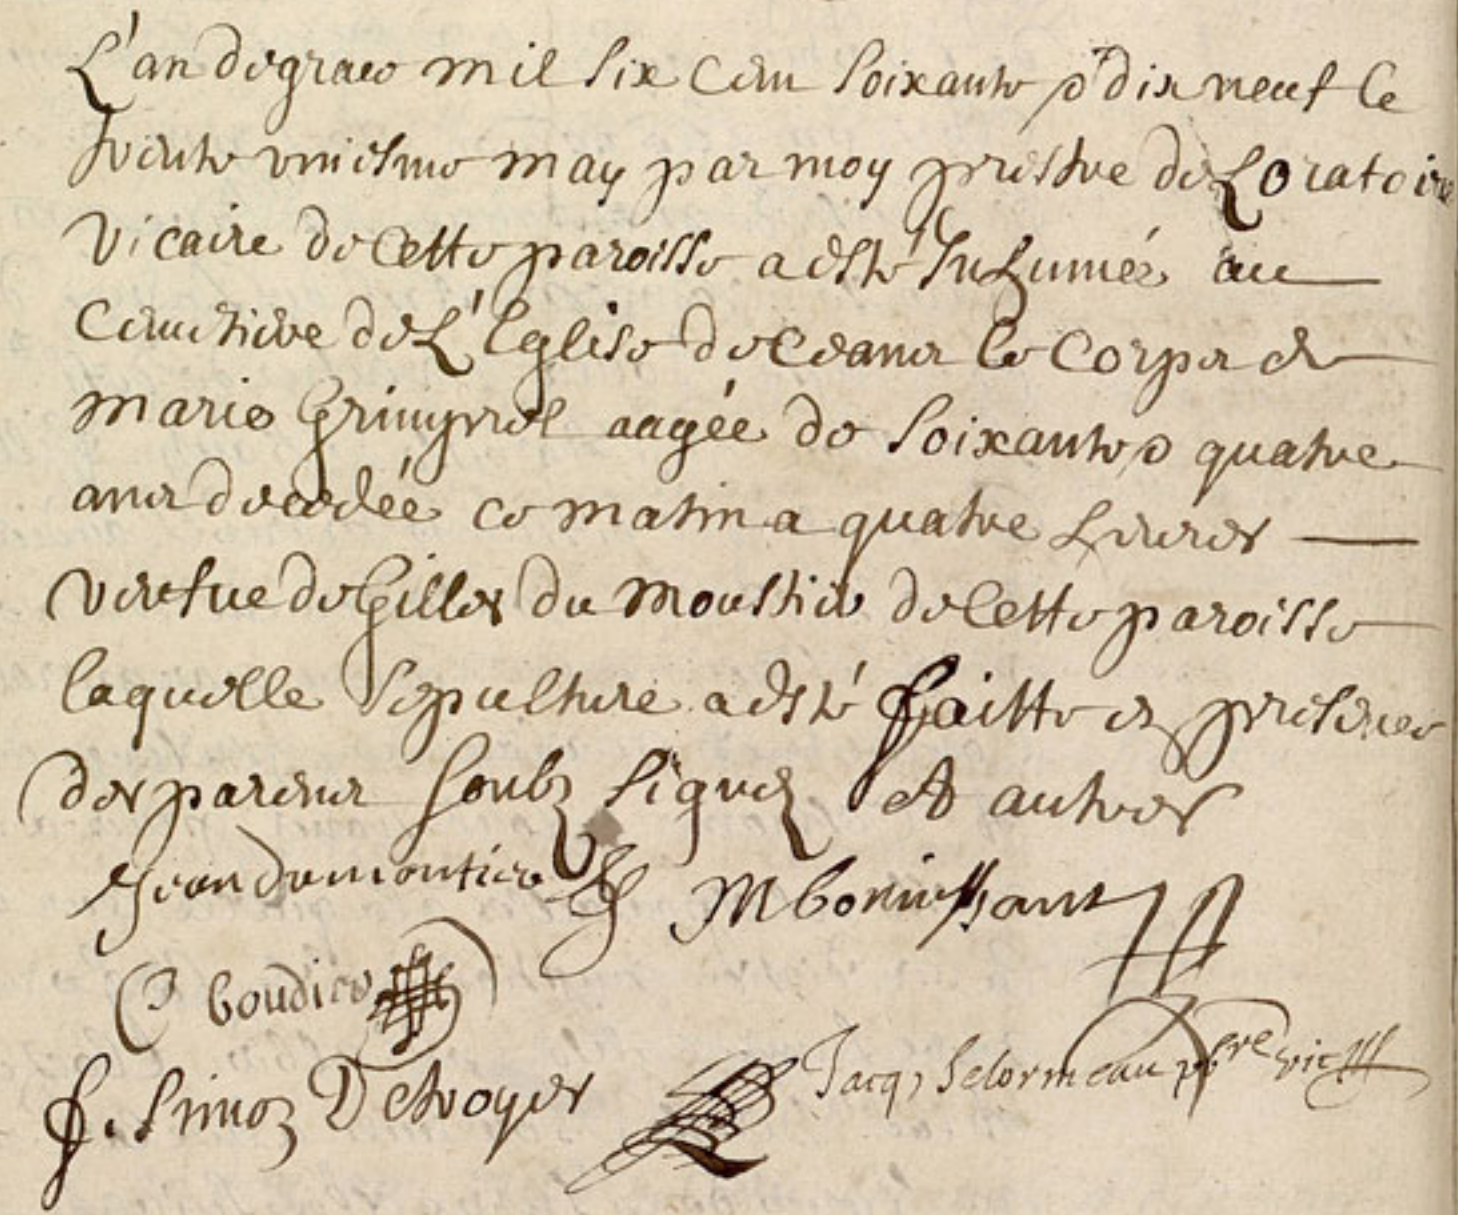 L'an de grace mil six cens soixante & dix neuf le
trente uniesme may par moy prestre de L'oratoire
vicaire de cette paroisse a esté inhumée au
Cimetiere de L'Eglise de ceans le corps de
marie aagée de soixante & quatre
ans decedée ce matin a quatre heures
vefue de Gilles du Moustier de cette paroisse
laquelle sepulture a esté faitte es presence
des parens soubz signez et autres
Jean dumontier M bonissant
boudier
f. Simon Detroyes Jacq, delormeau pbre vic